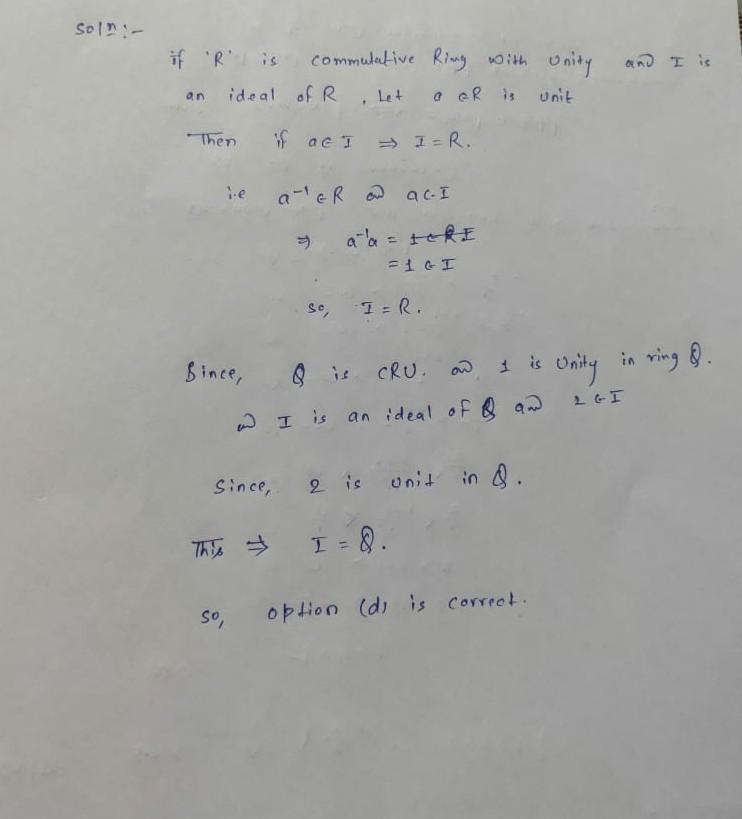 Soln:-
if 'R' is commutative Ring with Unity and I is
an ideal of R , Let a ∈R is unit
Then if a∈ I ⇒ I = R.
i.e a⁻¹ ∈ R and a ∈ I
⇒ a⁻¹a = 1 ∈ R I
= 1 ∈ I
so, I = R.
Since, Q is CRU. and 1 is Unity in ring Q.
and I is an ideal of Q and 2 ∈ I
Since, 2 is unit in Q.
This ⇒ I = Q.
so, option (d) is correct.